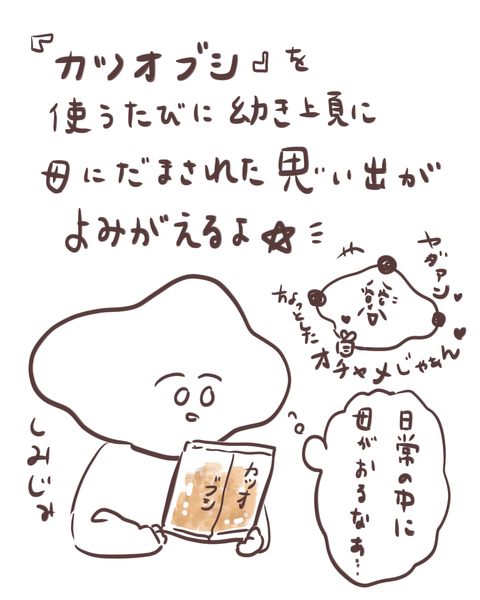 『カツオブシ』を
使うたびに幼き頃に
母にだまされた思い出が
よみがえるよ☆
ヤダァン♥
ちょっとした
オチャメじゃぁん♥
カツオ
ブシ
しみじみ
日常の中に
母がおるなぁ…